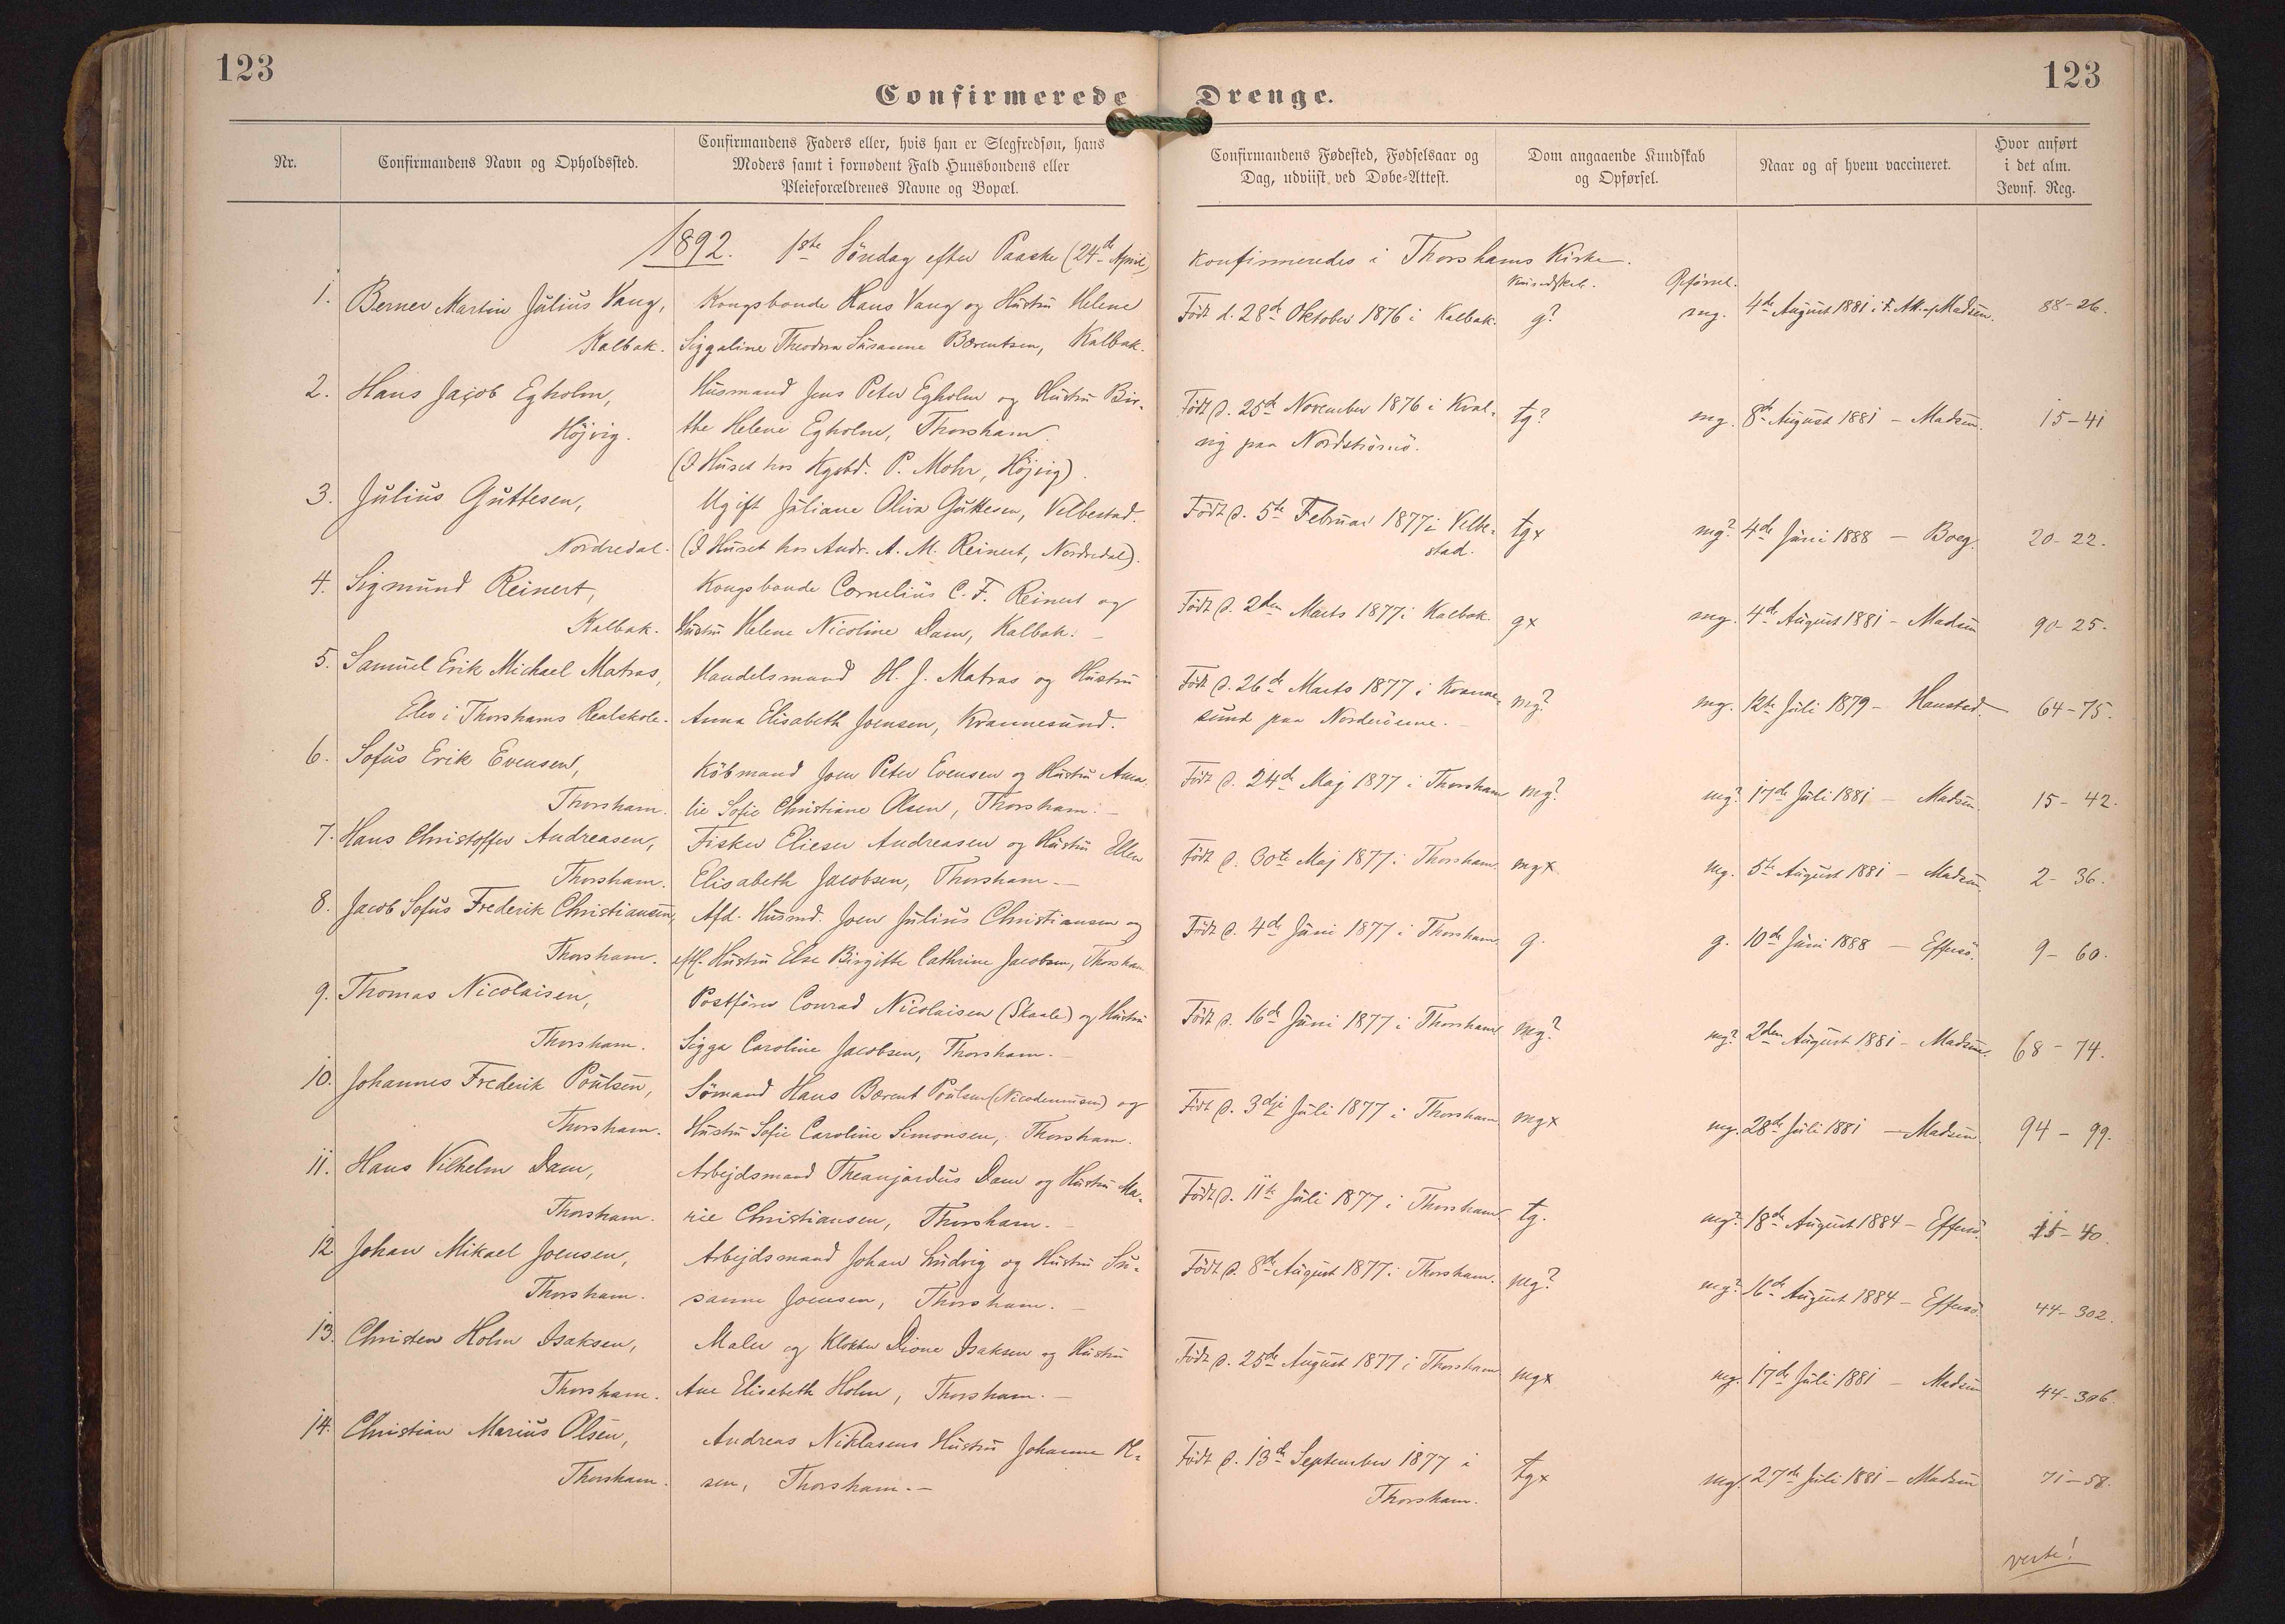 123
123
Confirmerede Drenge.
Nr.
Confirmandens Navn og Opholdssted.
Confirmandens Faders eller, hvis han er Slegfredsøn, hans
Moders samt i fornødent Fald Huusbondens eller
Pleieforældrenes Navne og Bopæl.
Confirmandens Fødested, Fødselsaar og
Dag, udviist ved Døbe-Attest.
Dom angaaende Kundskab
og Opførsel.
Naar og af hvem vaccineret.
Hvor anført
i det alm.
Jevnf. Reg.
1892. 1ste Söndag efter Paaske (24de April) konfirmeredes i Thorshavns Kirke.
Kundskab. Opförsel.
1. Berner Martin Júlíus Vang, Kongsbonde Hans Vang og Hústrú Helene Födt d. 28de Oktober 1876 i Kalbak. g? mg. 4de Aúgúst 1881 i F. Madsen. 88-26.
Kalbak. Siggaline Theodora Súsanne Bærentsen, Kalbak.
2. Hans Jacob Egholm, Húsmand Jens Peter Egholm og Hústrú Bir- Födt d. 25de November 1876 i Kval- tg? mg. 8de Aúgúst 1881 - Madsen. 15-41
Höjvig. the Helene Egholm, Thorshavn. vig paa Nordströmö.
(I Húset hos Kgsbd. P. Mohr, Höjvig).
3. Júliús Gúttesen, Ugift Júliane Oliva Gúttesen, Velbestad. Födt d. 5te Febrúar 1877 i Velbe- tgx mg? 4de Júni 1888 - Boeg. 20-22.
stad.
Nordredal. (I Húset hos Andr. A. M. Reinert, Nordredal).
4. Sigmúnd Reinert, Kongsbonde Corneliús C. F. Reinert og Födt d. 2den Marts 1877 i Kalbak. gx mg. 4de Aúgúst 1881 - Madsen 90-25.
Kalbak. Hústrú Helene Nicoline Dam, Kalbak. -
5. Samúel Erik Michael Matras, Handelsmand H. J. Matras og Hústrú Födt d. 26de Marts 1877 i Kvanne- mg? mg. 12te Júli 1879 - Hansted. 64-75.
Elev i Thorshavns Realskole. Anna Elisabeth Joensen, Kvannesúnd. súnd paa Norderöerne. -
6. Sofús Erik Evensen, Köbmand Joen Peter Evensen og Hústrú Ama- Födt d. 24de Maj 1877 i Thorshavn mg? mg? 17de Júli 1881 - Madsen. 15-42.
Thorshavn. lie Sofie Christiane Olsen, Thorshavn. -
7. Hans Christoffer Andreasen, Fisker Elieser Andreasen og Hústrú Ellen Födt d. 30te Maj 1877 i Thorshavn. mgx mg. 5te Aúgúst 1881 - Madsen. 2-36.
Thorshavn. Elisabeth Jacobsen, Thorshavn. -
8. Jacob Sofús Frederik Christiansen, Afd. Húsmd. Joen Júliús Christiansen og Födt d. 4de Júni 1877 i Thorshavn. g. g. 10de Júni 1888 - Effersö. 9-60.
Thorshavn. eftl. Hústrú Else Birgitte Cathrine Jacobsen, Thorshavn
9. Thomas Nicolaisen, Postförer Conrad Nicolaisen (Skaale) og Hústrú Födt d. 16de Júni 1877 i Thorshavn mg? mg? 2den Aúgúst 1881 - Madsen. 68-74.
Thorshavn. Sigga Caroline Jacobsen, Thorshavn. -
10. Johannes Frederik Poúlsen, Sömand Hans Bærent Poúlsen (Nicodemúsen) og Födt d. 3dje Júli 1877 i Thorshavn mgx mg. 28de Júli 1881 - Madsen. 94-99.
Thorshavn. Hústrú Sofie Caroline Simonsen, Thorshavn.
11. Hans Vilhelm Dam, Arbejdsmand Dam og Hústrú Ma- Födt d. 11te Júli 1877 i Thorshavn tg. mg? 18de Aúgúst 1884 - Effersö. 15-40.
Thorshavn. rie Christiansen, Thorshavn. -
12. Johan Mikael Joensen, Arbejdsmand Johan Lúdvig og Hústrú Sú- Födt d. 8de Aúgúst 1877 i Thorshavn. mg? mg? 16de Aúgúst 1884 - Effersö. 44-302.
Thorshavn. sanne Joensen, Thorshavn. -
13. Christen Holm Isaksen, Maler og Klokker Dione Isaksen og Hústrú Födt d. 25de Aúgúst 1877 i Thorshavn mgx mg. 17de Júli 1881 - Madsen 44-306.
Thorshavn. Ane Elisabeth Holm, Thorshavn. -
14. Christian Mariús Olsen, Andreas Niklasens Hústrú Johanne Ol- Födt d. 13de September 1877 i tgx mg. 27de Júli 1881 - Madsen 71-58.
Thorshavn. sen, Thorshavn. - Thorshavn.
verte!